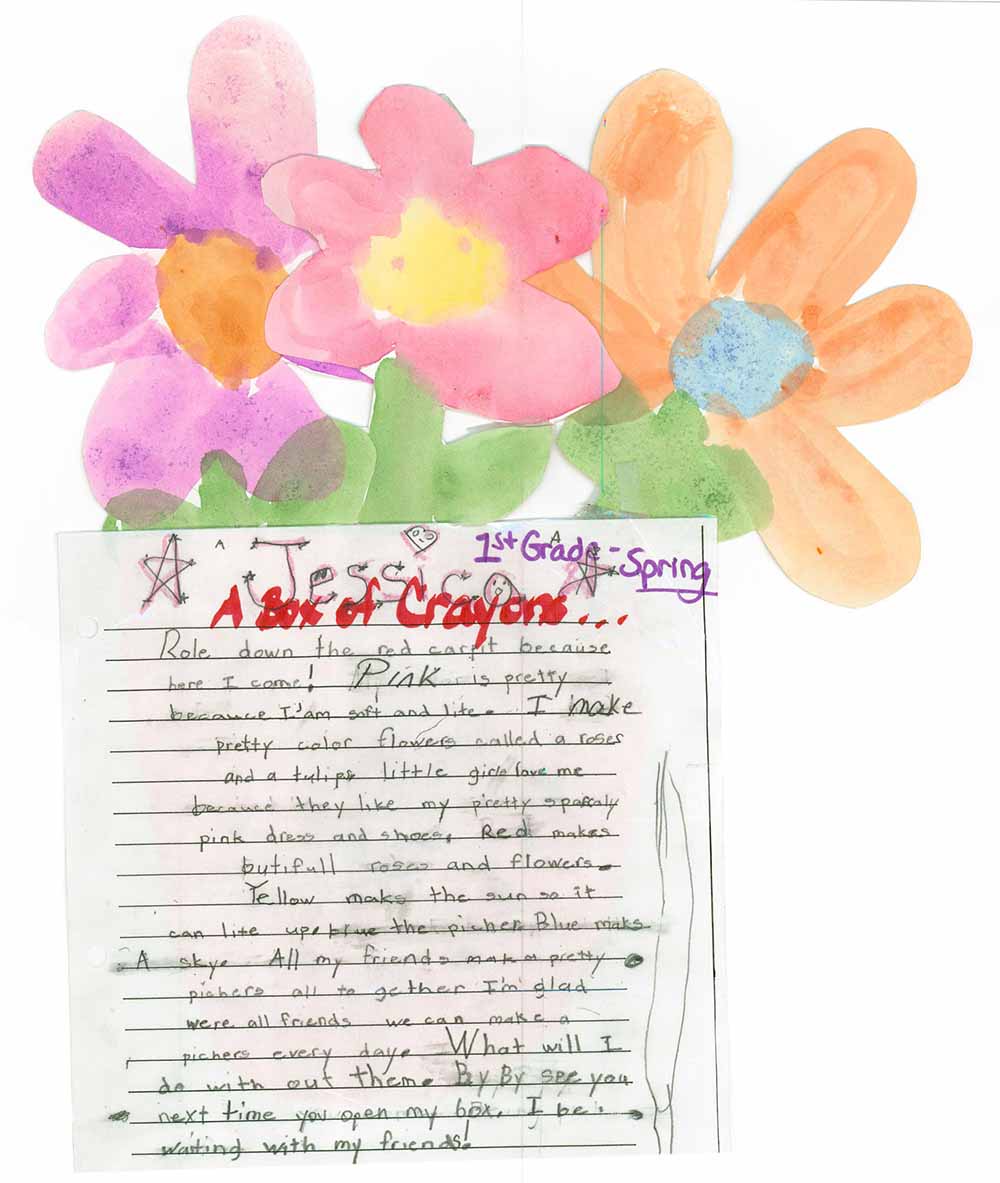 Jessica
1st Grade-
Spring
A Box of Crayons...
Role down the red carpit because
here I come! Pink is pretty
because I'am soft and lite. I make
pretty color flowers called a roses
and a tulips little girls love me
because they like my pretty sparcaly
pink dress and shoes. Red makes
butifull roses and flowers.
Yellow maks the sun so it
can lite up the picher Blue maks
A skye. All my friends make pretty
pichers all to gether I'm glad
were all friends we can make a
pichers every daye. What will I
do with out them. By By see you
next time you open my box. I be
waiting with my friends!